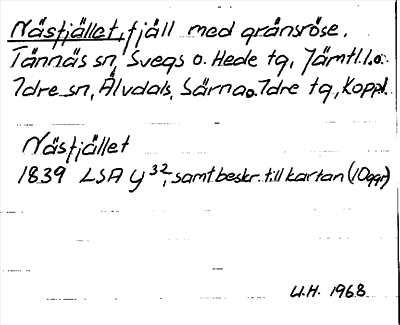 Nästjället, fjäll med gränsröse.
Tännäs sn, Svegs o. Hede tg, Jämtl. l. o.
Idre sn, Älvdals, Särna o. Idre tg, Koppl.
Nästjället
1839 LSA Y 32, samt beskr. till kartan (10 ggr)
U.H. 1968